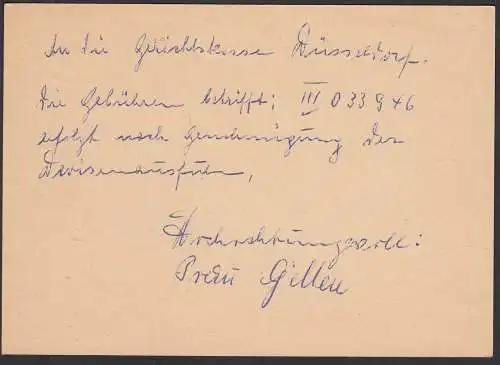 An die Gerichtskasse Düsseldorf.
Die Gebühren betrifft: III 033 946
erfolgt nach Genehmigung der
Devisenausfuhr,
Hochachtungsvoll:
Gellen